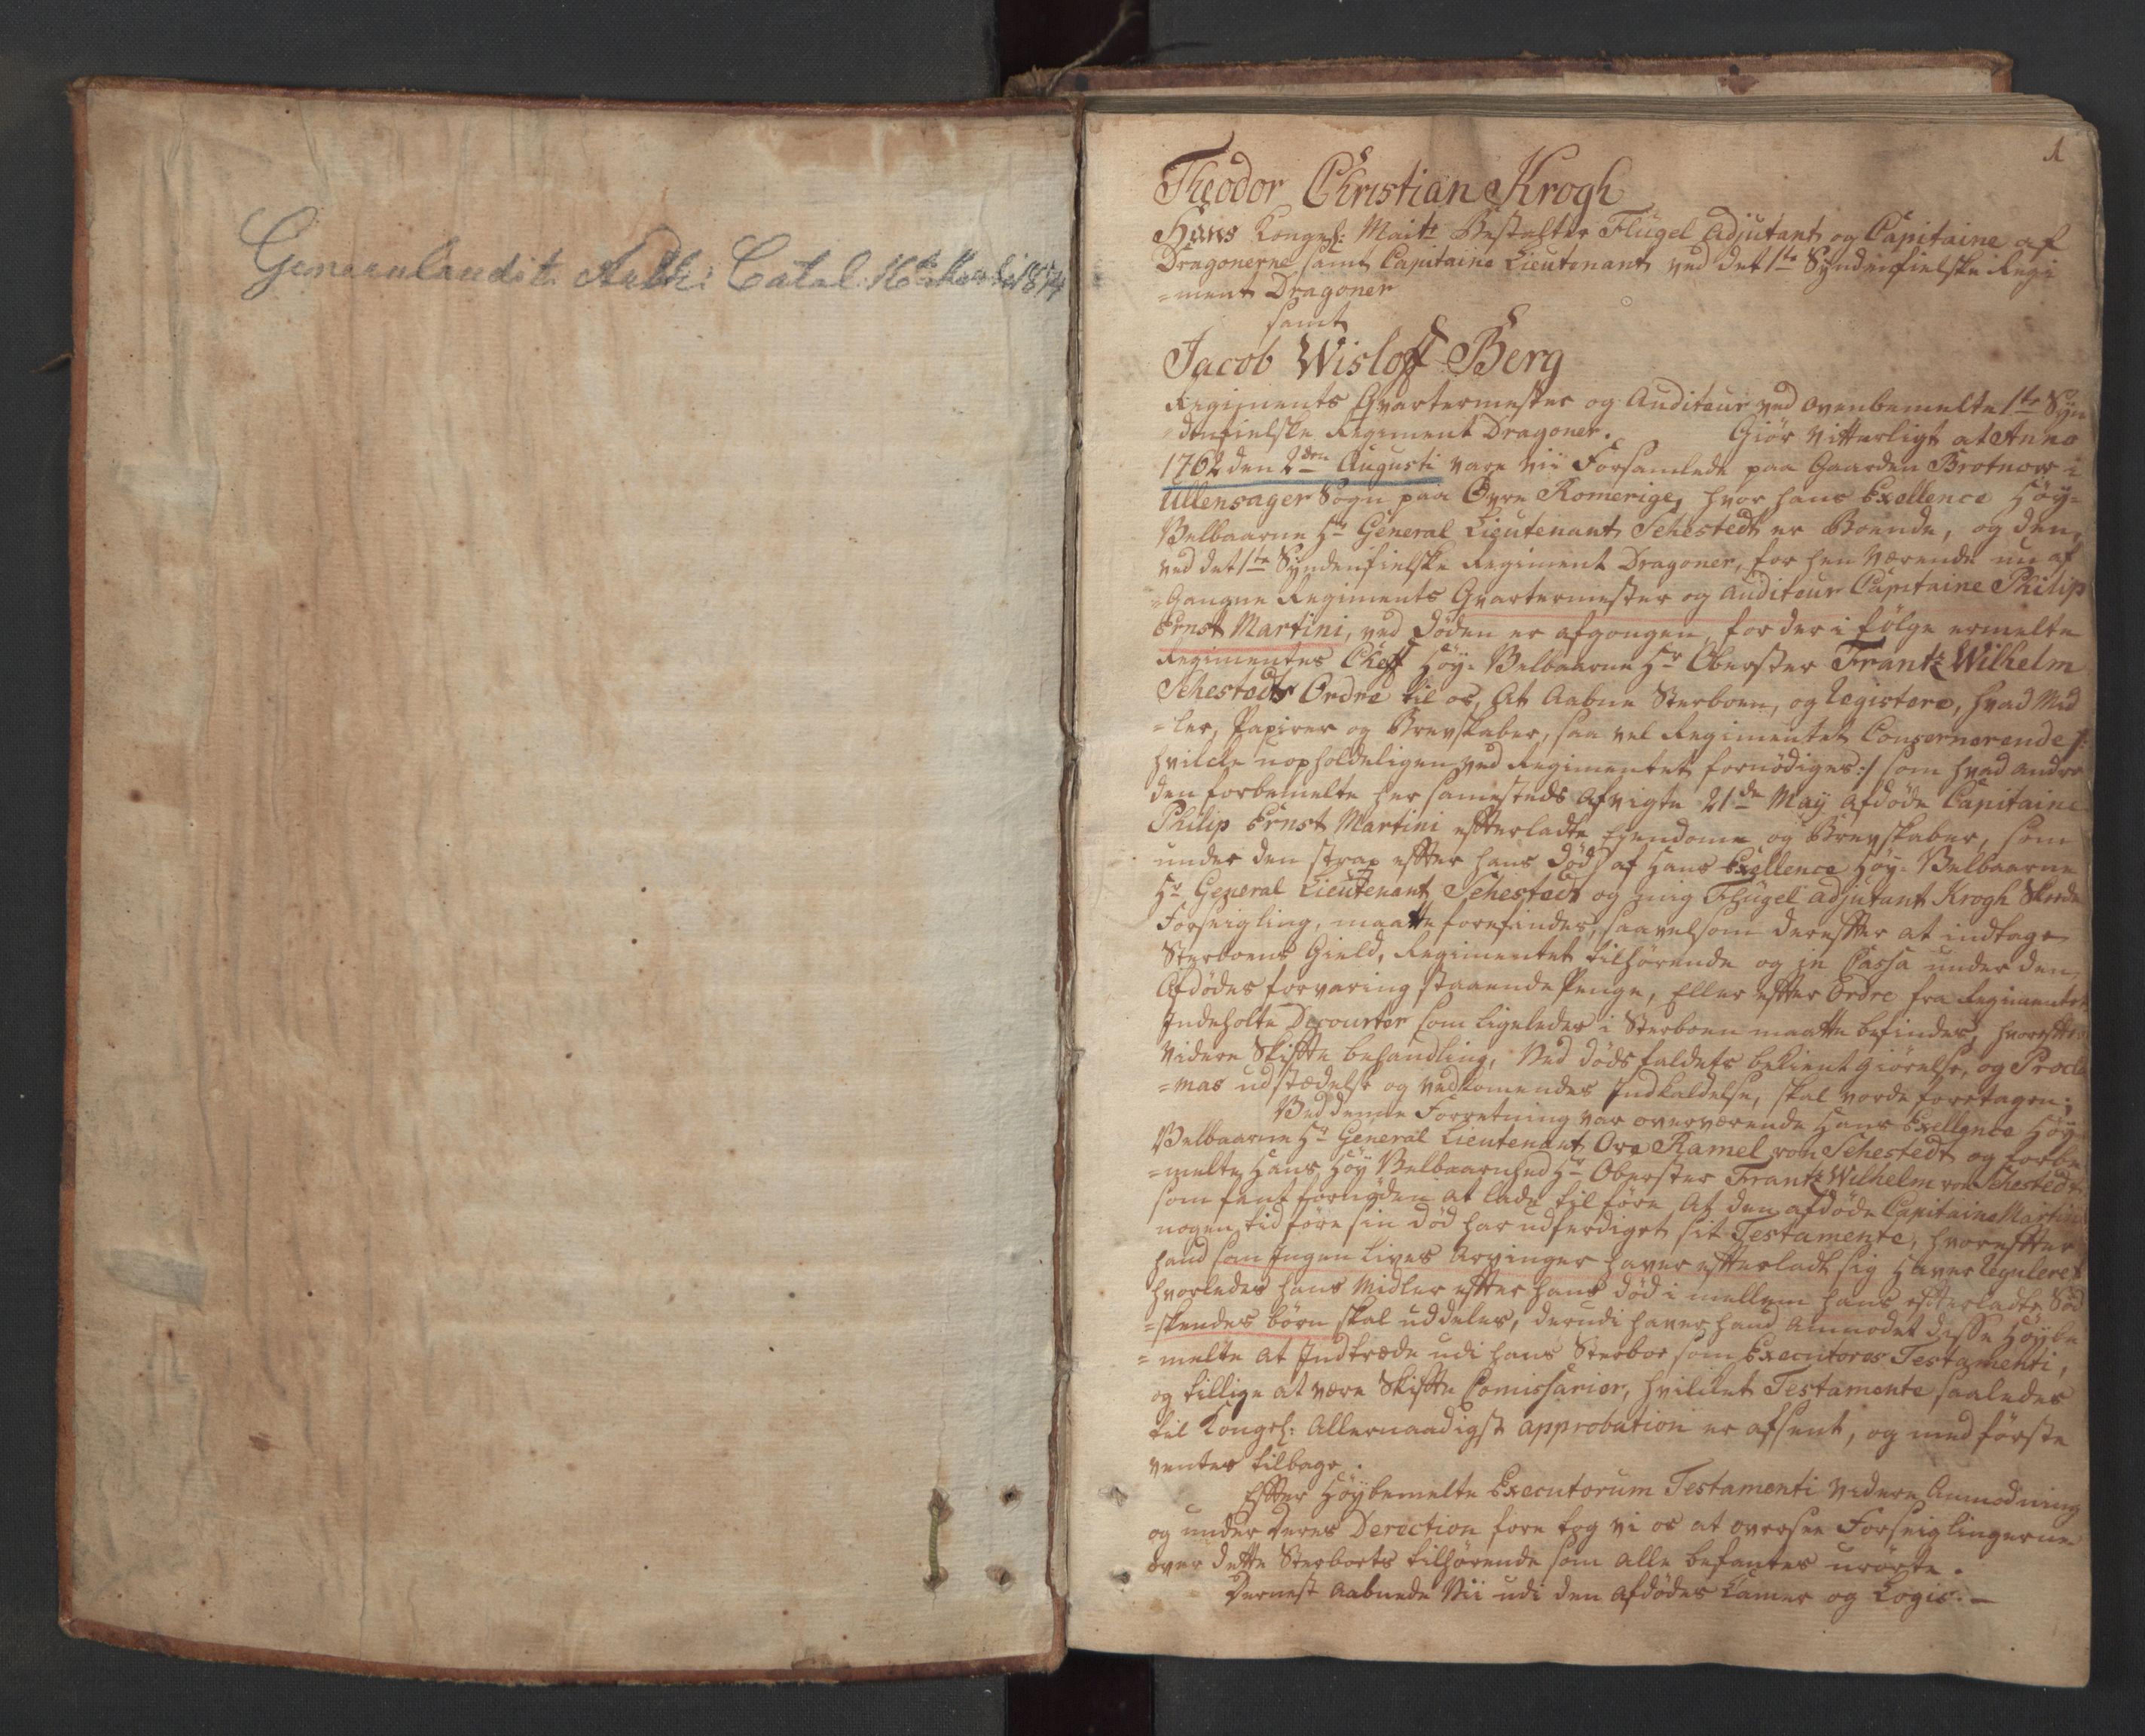 Generalaudit. Arkk: Catal. 16
1
Theodor Christian Krogh
Hans Kongel: Maits Bestalter Flügel Adjutant og Capitaine af
Dragonerne samt Capitaine Lieutenant ved det 1te Syndenfielske Regi
=ment Dragoner
samt
Jacob Wisloff Berg
Regiments Qvartermester og Auditeur ved ovenbemelte 1te Syn
=denfielske Regiment Dragoner. Giør vitterligt at Anno
1762 den 2den Augusti vare vii Forsamlede paa Gaarden Brotnow i
Ullensager Sogn paa Øvre Romerige, hvor hans Exellence Høy=
Velbaarne Hr General Lieutenant Sehestedt er Boende, og den
ved det 1te Syndenfielske Regiment Dragoner, for hen værende nu af
=Gangne Regiments Qvartermester og Auditeur Capitaine Philip
Ernst Martini, ved døden er afgongen, for der i følge ermelte
Regimentes Cheff Høy-Velbaarne Hr Oberster Frantz Wilhelm
Sehesteds Ordre til os, At Aabne Sterboen, og Registere, hvad Mid
=ler, Papirer og Brevskaber, saa vel Regimentet Consernerende /:
hvilcke uopholdeligen ved Regimentet fornødiges :/ som hvad andre
den forbemelte her sammesteds afvigte 21de May afdøde Capitaine
Philip Ernst Martini effterladte Eyendomme og Brevskaber, som
under den strax effter hans død af Hans Exellence Høy-Velbaarne
Hr General Lieutenant Sehested og mig Flügel adjutant Krogh Skeede
Forseigling, maatte forefindes, saavelsom dereffter at indtage
Sterboens Gield, Regimentet tilhørende og in Cassa under den
Afdødes forvaring staaende Penge, Eller effter Ordre fra Regimentet
Indeholte Decourter som ligeledes i Sterboen maatte befindes, hvoreffter
videre Skiffte behandling, Ved dødsfaldets bekientgiørelse, og Procla
=mas udstædelse og vedkommendes Indkaldelse, skal vorde foretagen;
Ved denne Forretning var overværende Hans Exellence Høy
Velbaarne Hr General Lieutenant Ove Ramel von Sehestedt og forbe
=melte Hans Høy Velbaarnhed Hr Oberster Frantz Wilhelm von Sehestedt
som fant fornøden at lade tilføre At den afdøde Capitaine Martini
nogen tid føre sin død har udferdiget sit Testamente, hvoreffter
hand som Ingen Livs Arvinger haver effterladt sig haver Reguleret
hvorledes hans Midler effter hans død i mellem hans effterladte Sød
=skendes børn skal uddeles, derudi haver hand anmodet disse Høybe
=melte At Indtræde udi hans Sterboe som Executores Testamenti,
og tillige at være Skiffte Comissarier, hvilcket Testamente saaledes
til Kongel: Allernaadigst approbation er afsent, og med første
ventes tilbage.
Effter Høybemelte Executorum Testamenti videre Anmodning
og under deres Derection fore tog vi os at oversee Forseiglingerne
over dette Sterboets tilhørende som alle befantes urørte.
Dernest Aabnede Vii udi den Afdødes Camer og Logis. –